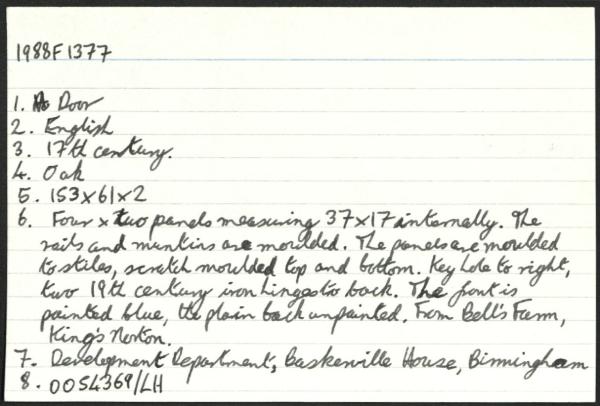 1988F1377
1. Door
2. English
3. 17th century.
4. Oak
5. 153x61x2
6. Four x two panels measuring 37x17 internally. The
rails and muntins are moulded. The panels are moulded
to stiles, scratch moulded top and bottom. Key hole to right,
two 19th century iron hinges to back. The front is
painted blue, the plain back unpainted. From Bell's Farm,
King's Norton.
7. Development Department, Baskerville House, Birmingham
8. 0054369/LH